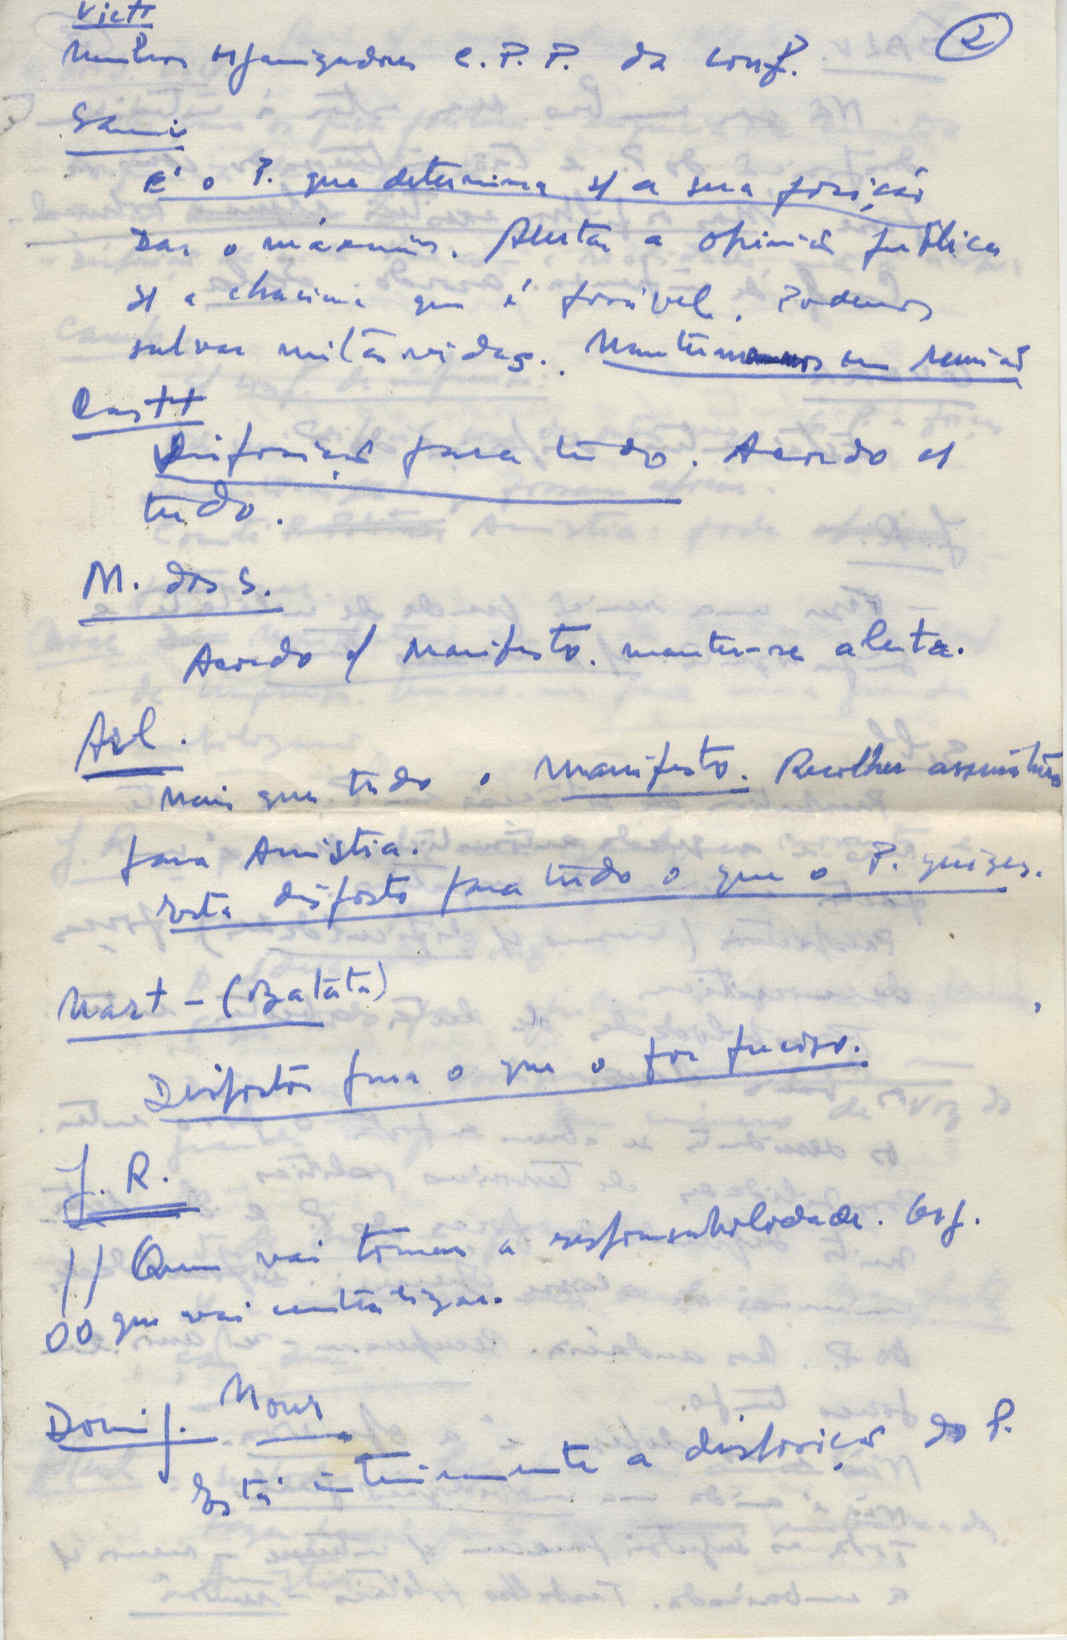 Vict
②
Nenhum organizadores C.P.P. da conf.
É o P. que determina s/ a sua posição
Dar o máximo. Alertar a opinião pública
s/ a chacina que é possível. Podemos
salvar muitas vidas. em reunião
Cast
Disposição para tudo. Acordo c/
tudo.
M. dos S.
Acordo c/ Manifesto. manter-se alerta.
Adl.
Mais que tudo o Manifesto. Recolher assinaturas
para Amistia.
Está disposto para tudo o que o P. quizer.
Mart - (Batata)
Disposto para o que o for preciso.
J. R.
// Quem vai tomar a responsabilidade. Org.
00 que vai centralizar.
Domi
Está inteiramente a disposição do P.